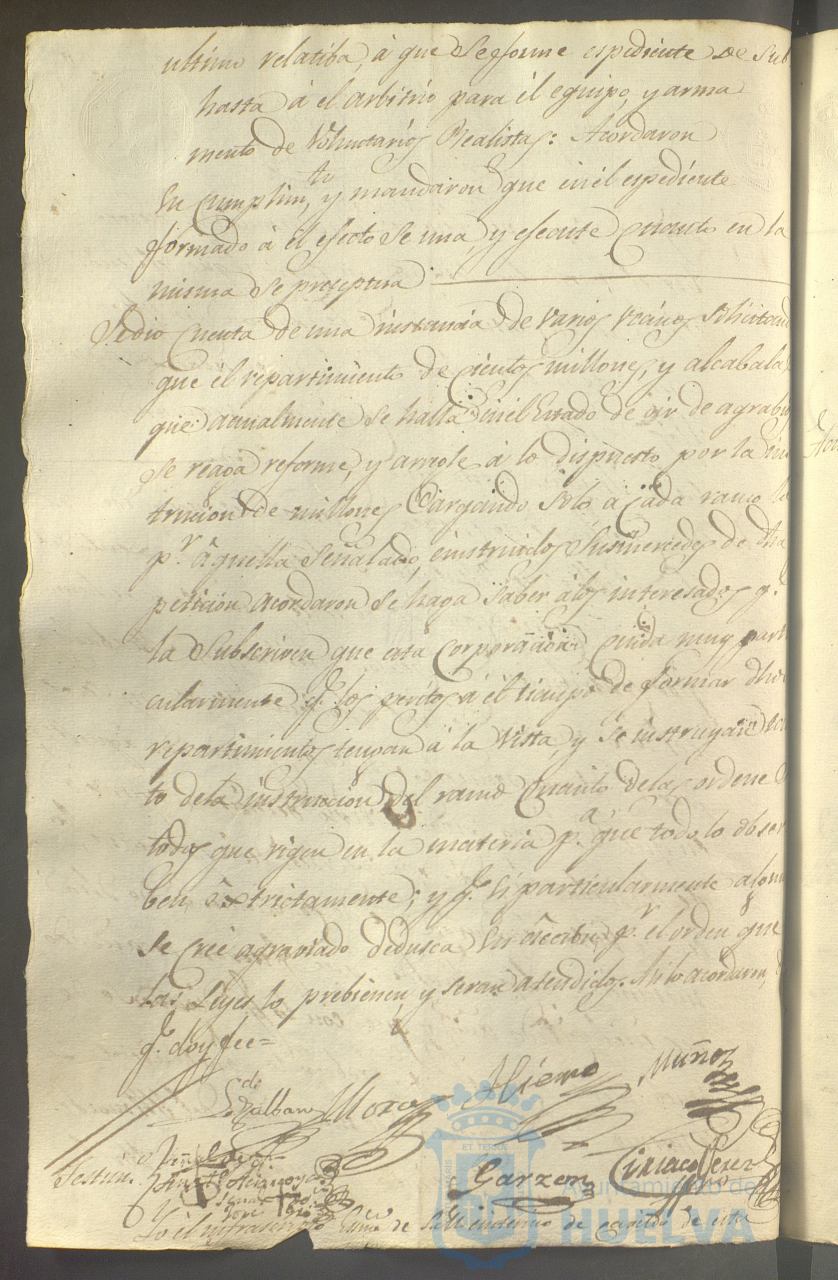 ultimo relatiba, á que se forme espediente de Sub
hasta á el arbitrio para él equipo, y arma
mento de Voluntarios Realistas: Acordaron
En Cumplim.to y mandaron que en él espediente
formado á el efecto se una, y esecute Cuanto en la
misma se preseptua
Se dio cuenta de una instancia de varios vecinos solicitand
que él repartimiento de cientos millones, y alcabalas
que actualmente se halla en él Estado de oir de agrabio
se reaga reforme, y arregle á lo dispuesto por la ins
trucion de millones Cargando solo a cada ramo lo
p.r aquella señalado, é instruidos sus mercedes de dha
peticion acordaron se haga saber á los interesados q.e
la Subscriven que esta Corporacion cuida muy parti
cularmente q.e los peritos á él tiempo de formar dhos
repartimientos tengan á la vista, y se instruyan tan
to de la instrucion del ramo Cuanto de las ordenes
todas que rigen en la materia p.a que todo lo obser
ben estrictamente; y q.e si particularmente alguno
se cree agraviado dedusca su accion p.r el orden que
las Leyes lo prebienen, y seran atendidos. Asi lo acordaron,
q.e doy fee=
Moro
Muñoz
Garzon
Ciriaco Perez
Yo él infrascripto de esta
ET TERRA
Ayuntamiento de
HUELVA